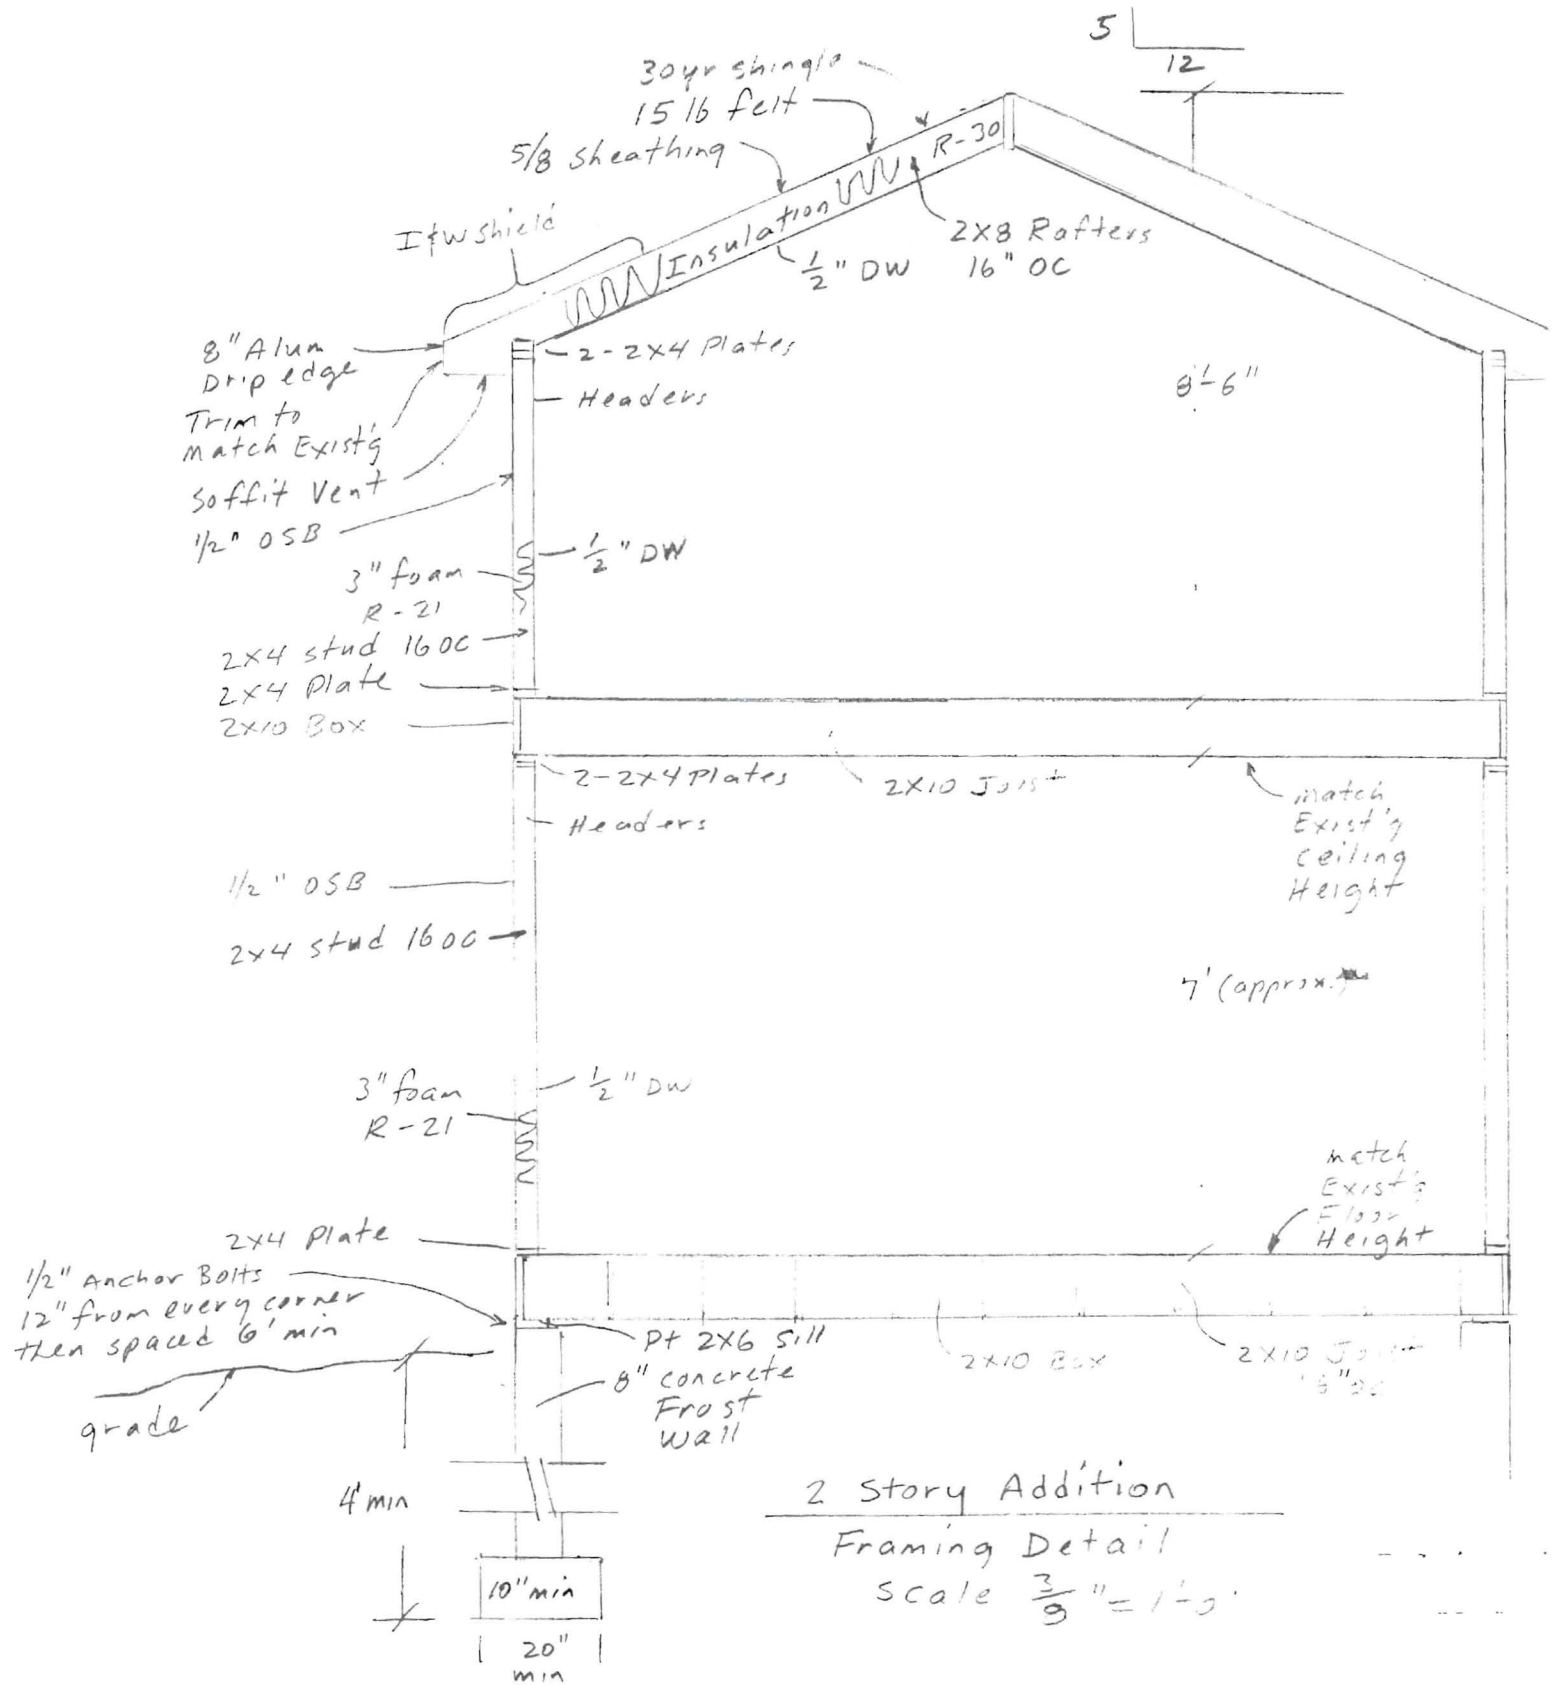 5
12
30yr shingle
15 lb felt
5/8 sheathing
R-30
I&W shield
Insulation
2X8 Rafters
16" OC
1/2" DW
8" Alum
Drip edge
2-2X4 Plates
Headers
8'-6"
Trim to
Match Exist'g
Soffit Vent
1/2" OSB
1/2" DW
3" foam
R-21
2X4 stud 16 OC
2X4 Plate
2X10 Box
2-2X4 Plates
2X10 Joist
Headers
match
Exist'g
Ceiling
Height
1/2" OSB
2X4 stud 16 OC
7' (approx.)
3" foam
R-21
1/2" DW
match
Exist'g
Floor
Height
2X4 Plate
1/2" Anchor Bolts
12" from every corner
then spaced 6' min
Pt 2X6 Sill
2X10 Box
2X10 Joist
8" concrete
Frost
Wall
grade
4' min
10" min
20"
min
2 Story Addition
Framing Detail
Scale 3/8" = 1'-0"